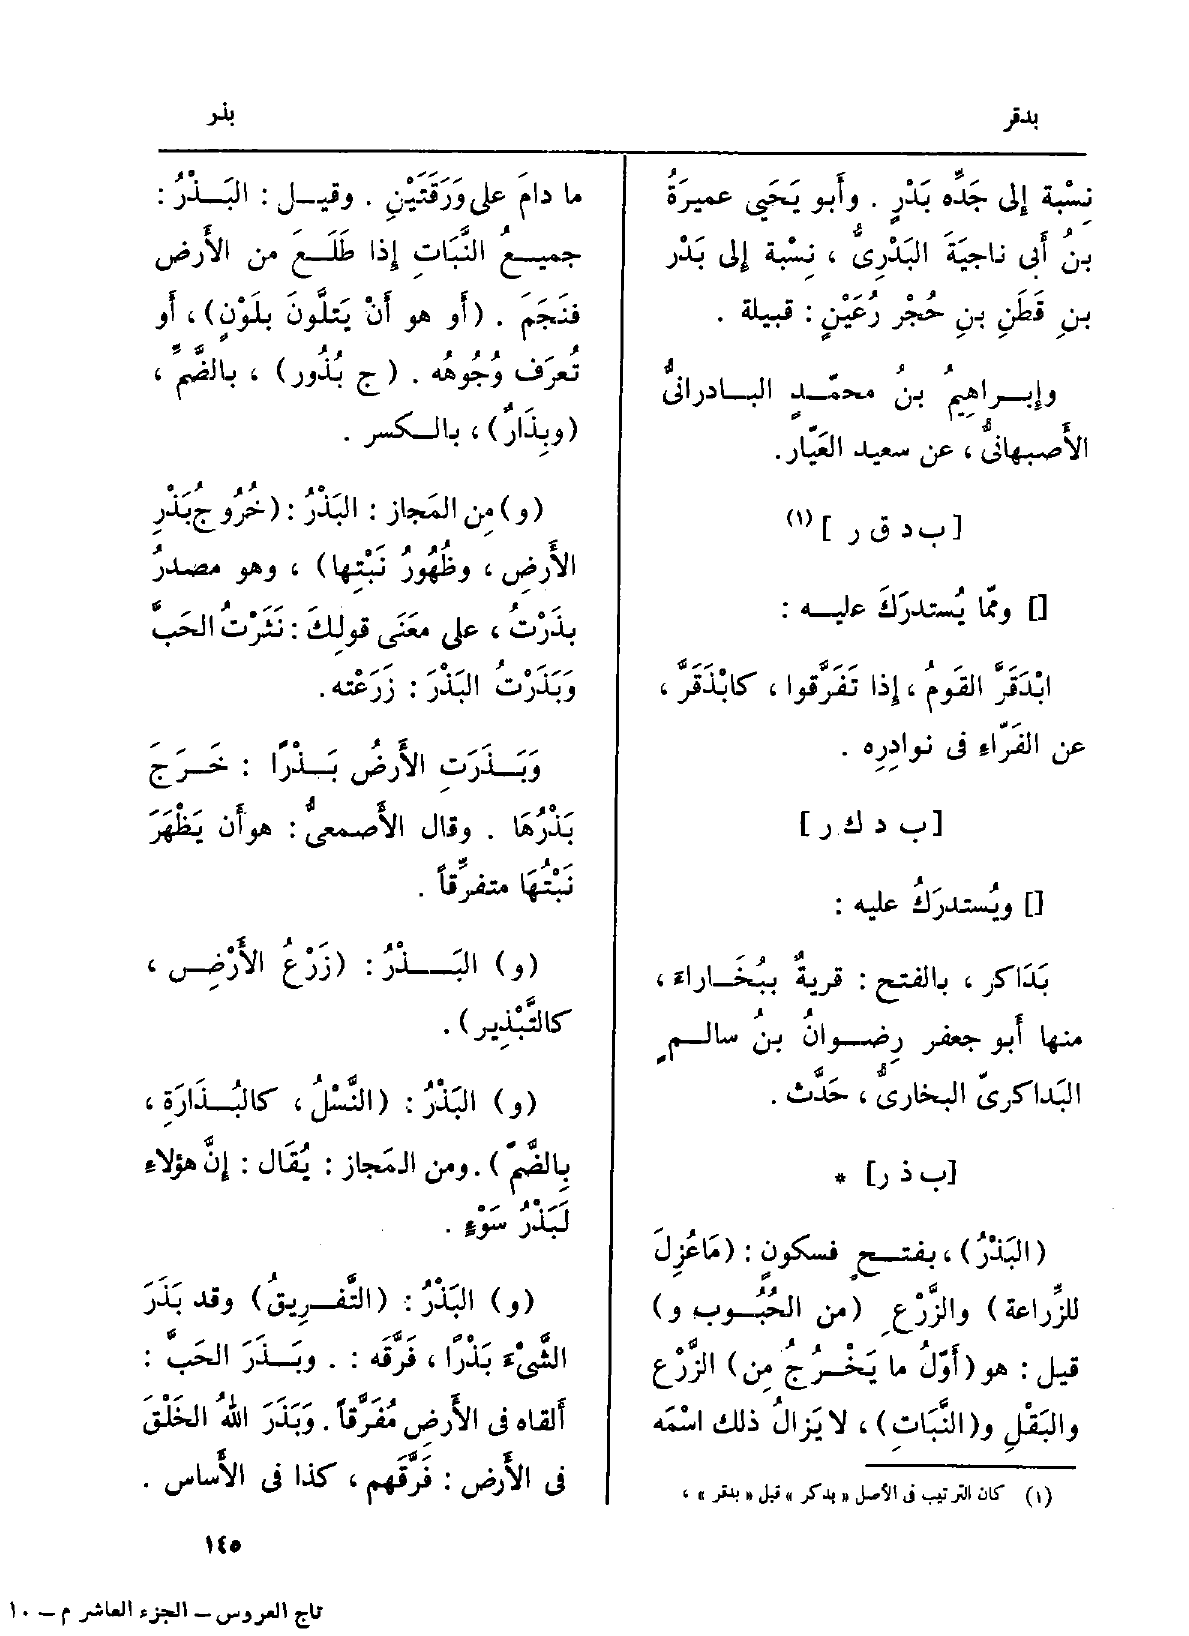 بدقر
بذر
نِسْبة إلى جَدِّه بَدْرٍ . وأَبو يَحَيى عميرَةُ
بنُ أَبى ناجيَةَ البَدْرِىُّ ، نِسْبة إلى بَدْر
بنِ قَطَنِ بنِ حُجْر رُعَيْنٍ : قبيلة .
وإبــراهِيمُ بنُ محمّــدٍ البــادرانىُّ
الأَصبهانىُّ ، عن سعيد العَيّار.
[ ب د ق ر ] (١)
[] وممّا يُستدرَكَ عليــه :
ابْدَقَرَّ القَومُ ، إذا تَفَرَّقوا ، كابْذَقَرَّ ،
عن الفَرّاءِ فى نوادِرِه .
[ ب د ك ر ]
[] ويُستدرَكُ عليه :
بَدَاكر ، بالفتح : قريةٌ ببُخَــاراءَ ،
منها أَبو جعفر رِضــوانُ بنُ سالــمٍ
البَداكرىّ البخارىُّ ، حَدَّث .
[ب ذ ر] *
(البَذْرُ) ، بفتــحٍ فسكونٍ : (مَا عُزِلَ
للزِّراعة) والزَّرْعِ (من الحُبُوب و)
قيل : هو (أَوّلُ ما يَخْــرُجُ مِن) الزَّرْع
والبَقْلِ و(النَّبَاتِ) ، لا يَزالُ ذلك اسْمَه
(١) كان الترتيب فى الأصل « بدكر » قبل « بدقر » ،
ما دامَ على وَرَقَتَيْنِ . وقيــل : البَــذْرُ :
جميــعُ النَّبَاتِ إذا طَلَــعَ من الأَرض
فنَجَمَ . (أَو هو أَنْ يَتلَّونَ بلَوْنٍ) ، أَو
تُعرَف وُجُوهُه . (ج بُذُور) ، بالضَّمِّ ،
(وبِذَارٌ) ، بالــكسر .
(و) مِن المَجاز : البَذْرُ : (خُرُوجُ بَذْرِ
الأَرضِ ، وظُهُورُ نَبْتِها) ، وهو مصدرُ
بذَرْتُ ، على معَنَى قولِكَ : نَثَرْتُ الحَبَّ
وَبَذَرْتُ البَذْرَ : زَرَعْته .
وَبَــذَرَتِ الأَرضُ بَــذْرًا : خَــرَجَ
بَذْرُهَا . وقال الأَصمعىُّ : هو أَن يَظْهَرَ
نَبْتُهَا متفرِّقاً .
(و) البَــذْرُ : (زَرْعُ الأَرْضِــ ،
كالتَّبْذِير) .
(و) البَذْرُ : (النَّسْلُ ، كالبُــذَارَةِ ،
بِالضَّمّ) . ومن المَجاز : يُقَال : إنَّ هؤلاءِ
لَبَذْرُ سَوْءٍ .
(و) البَذْرُ : (التَّفــرِيقُ) وقد بَذَرَ
الشَّىْءَ بَذْرًا ، فَرَّقَه : . وبَــذَرَ الحَبَّ :
أَلقاه فى الأَرضِ مُفَرَّقاً . وَبَذَرَ اللهُ الخَلْقَ
فى الأَرض : فَرَّقَهم ، كذا فى الأَساس .
١٤٥
تاج العروس – الجزء العاشر م – ١٠